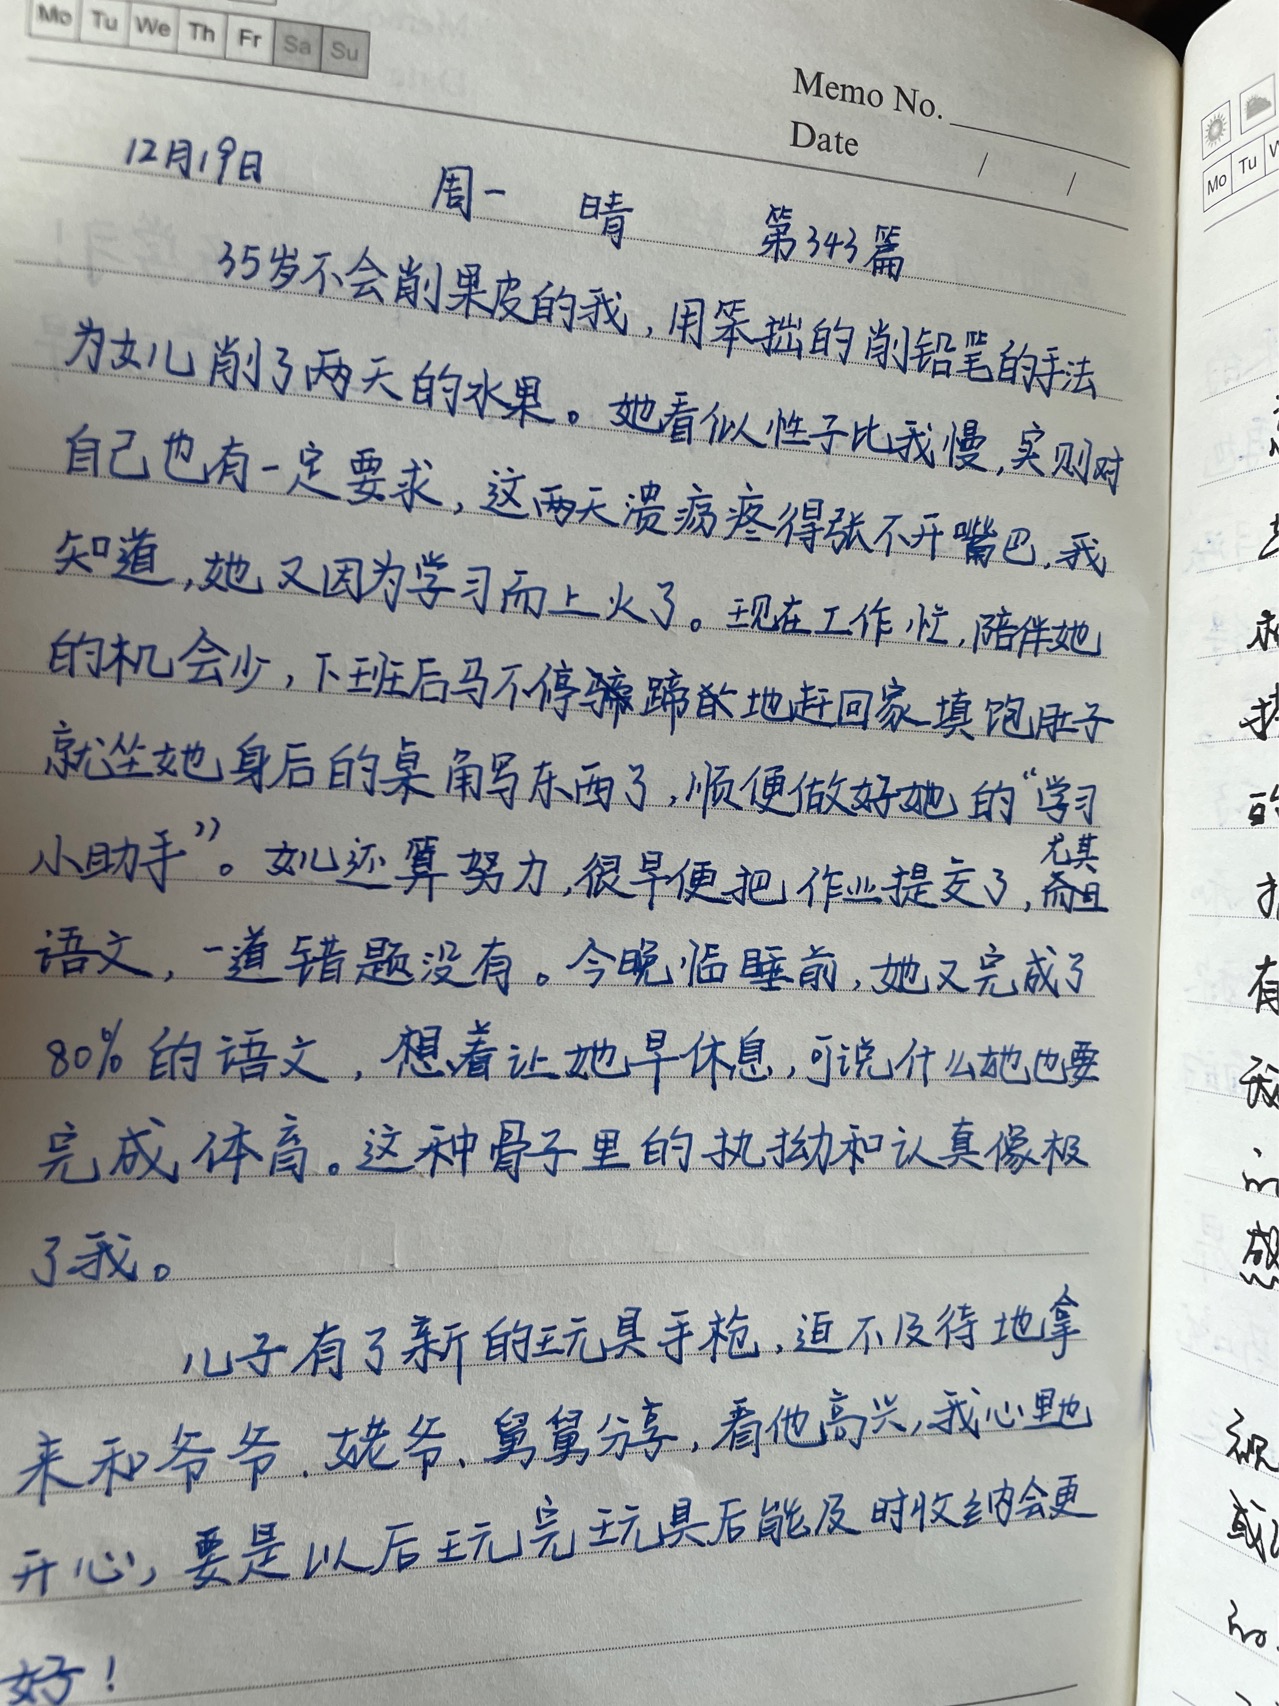 Mo Tu We Th Fr Sa Su
Memo No.
Date / /
12月19日 周一 晴 第343篇
35岁不会削果皮的我，用笨拙的削铅笔的手法
为女儿削了两天的水果。她看似性子比我慢，实则对
自己也有一定要求，这两天溃疡疼得张不开嘴巴，我
知道，她又因为学习而上火了。现在工作忙，陪伴她
的机会少，下班后马不停蹄地赶回家填饱肚子
就坐她身后的桌角写东西了，顺便做好她的“学习
小助手”。女儿还算努力，很早便把作业提交了，尤其
语文，一道错题没有。今晚临睡前，她又完成了
80%的语文，想着让她早休息，可说什么她也要
完成体育。这种骨子里的执拗和认真像极
了我。
儿子有了新的玩具手枪，迫不及待地拿
来和爷爷、姥爷、舅舅分享，看他高兴，我心里也
开心，要是以后玩完玩具后能及时收纳会更
好！
Mo Tu